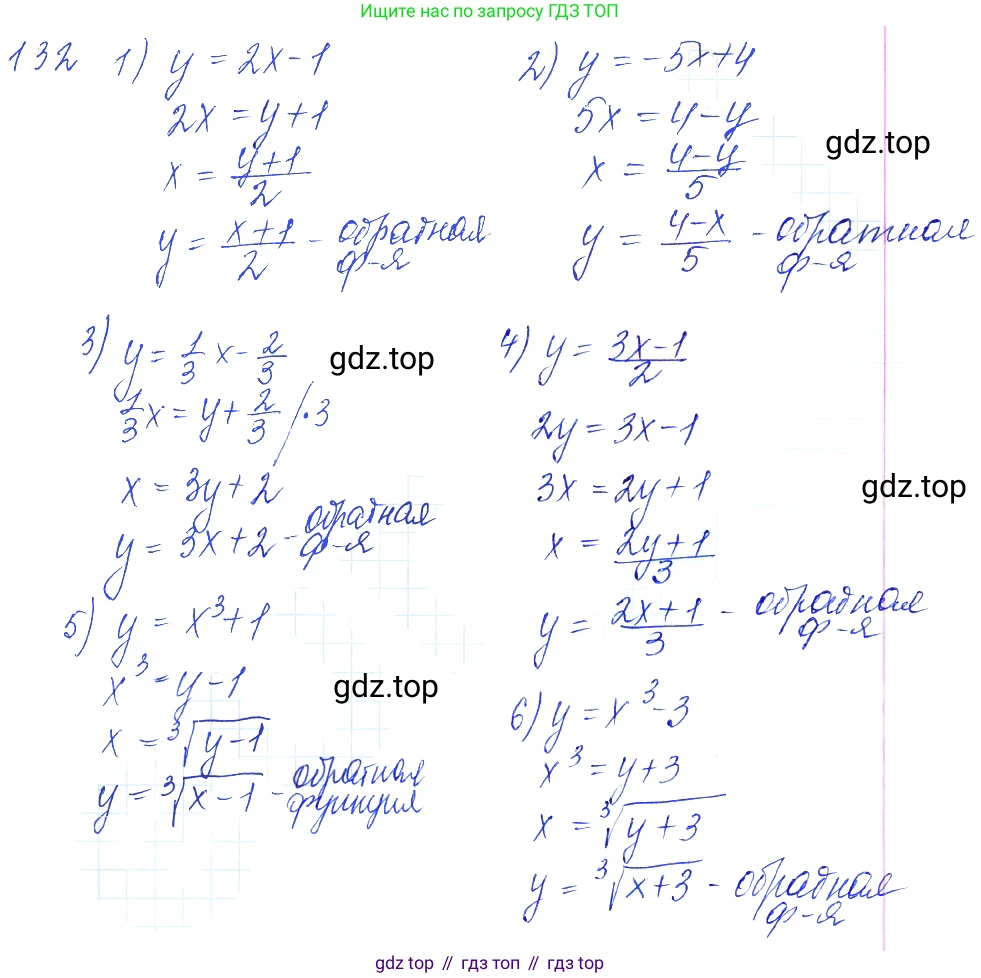 Ищите нас по запросу ГДЗ ТОП
132 1) y = 2x - 1
2x = y + 1
x = (y+1)/2
y = (x+1)/2 - обратная ф-я
2) y = -5x + 4
5x = 4 - y
x = (4-y)/5
y = (4-x)/5 - обратная ф-я
gdz.top
3) y = 1/3 x - 2/3
1/3 x = y + 2/3 / · 3
x = 3y + 2
y = 3x + 2 - обратная ф-я
gdz.top
4) y = (3x-1)/2
2y = 3x - 1
3x = 2y + 1
x = (2y+1)/3
y = (2x+1)/3 - обратная ф-я
gdz.top
5) y = x³ + 1
x³ = y - 1
x = ³√(y-1)
y = ³√(x-1) - обратная функция
gdz.top
6) y = x³ - 3
x³ = y + 3
x = ³√(y+3)
y = ³√(x+3) - обратная ф-я
gdz.top // гдз топ // гдз top